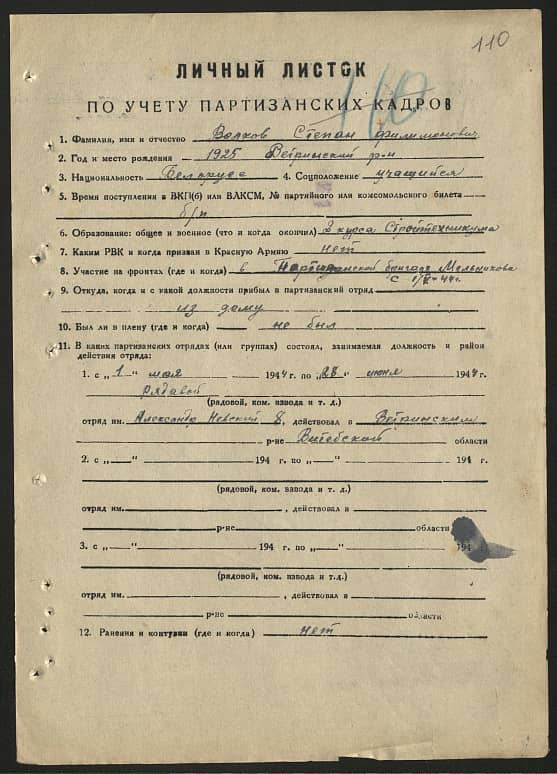 110
ЛИЧНЫЙ ЛИСТОК
110
ПО УЧЕТУ ПАРТИЗАНСКИХ КАДРОВ
1. Фамилия, имя и отчество Волков Степан Филимонович
2. Год и место рождения 1925 Ветринский р-он
3. Национальность Белорус 4. Соцположение учащийся
5. Время поступления в ВКП(б) или ВЛКСМ, № партийного или комсомольского билета
б/п
6. Образование: общее и военное (что и когда окончил) 2 курса Стройтехникума
7. Каким РВК и когда призван в Красную Армию нет
8. Участие на фронтах (где и когда) в Партизанской бригаде Мельникова
с 1/V-44г.
9. Откуда, когда и с какой должности прибыл в партизанский отряд
из дому
10. Был ли в плену (где и когда) не был
11. В каких партизанских отрядах (или группах) состоял, занимаемая должность и район
действия отряда:
1. с „1“ мая 1944 г. по „28“ июня 1944 г.
рядовой
(рядовой, ком. взвода и т. д.)
отряд им. Александр Невский 8, действовал в Ветринским
р-не Витебской области
2. с „ “ 194 г. по „ “ 194 г.
(рядовой, ком. взвода и т. д.)
отряд им. , действовал в
р-не области
3. с „ “ 194 г. по „ “ 194 г.
(рядовой, ком. взвода и т. д.)
отряд им. , действовал в
р-не области
12. Ранения и контузии (где и когда) нет